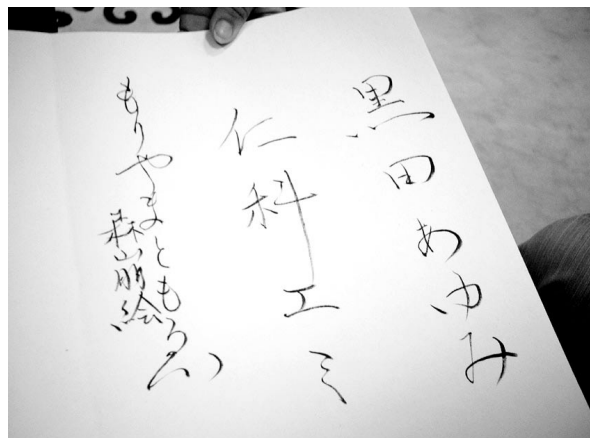 黒田あゆみ
仁科エミ
もりやまともゑ
森山朋絵